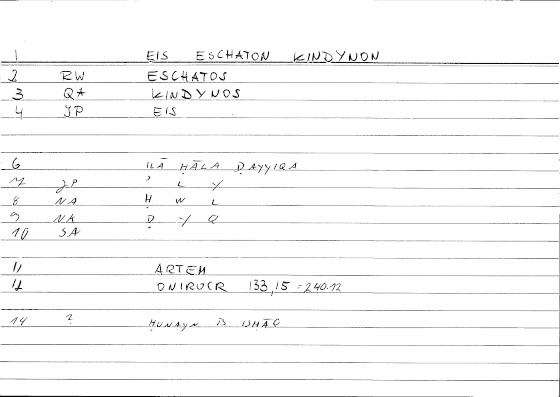 1 EIS ESCHATON KINDYNON
2 RW ESCHATOS
3 QA KINDYNOS
4 JP EIS
6 ILĀ ḤĀLA ḌAYYIQA
7 JP ʾ L Y
8 NA Ḥ W L
9 NA Ḍ Y Q
10 SA
11 ARTEM
12 ONIROCR 133,15 = 240.12
14 ? ḤUNAYN B ISḤĀQ